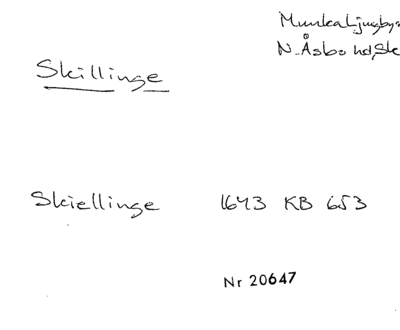 Munka Ljungby s
N. Åsbo hd, Sk
Skillinge
Skiellinge 1643 KB 653
Nr 20647